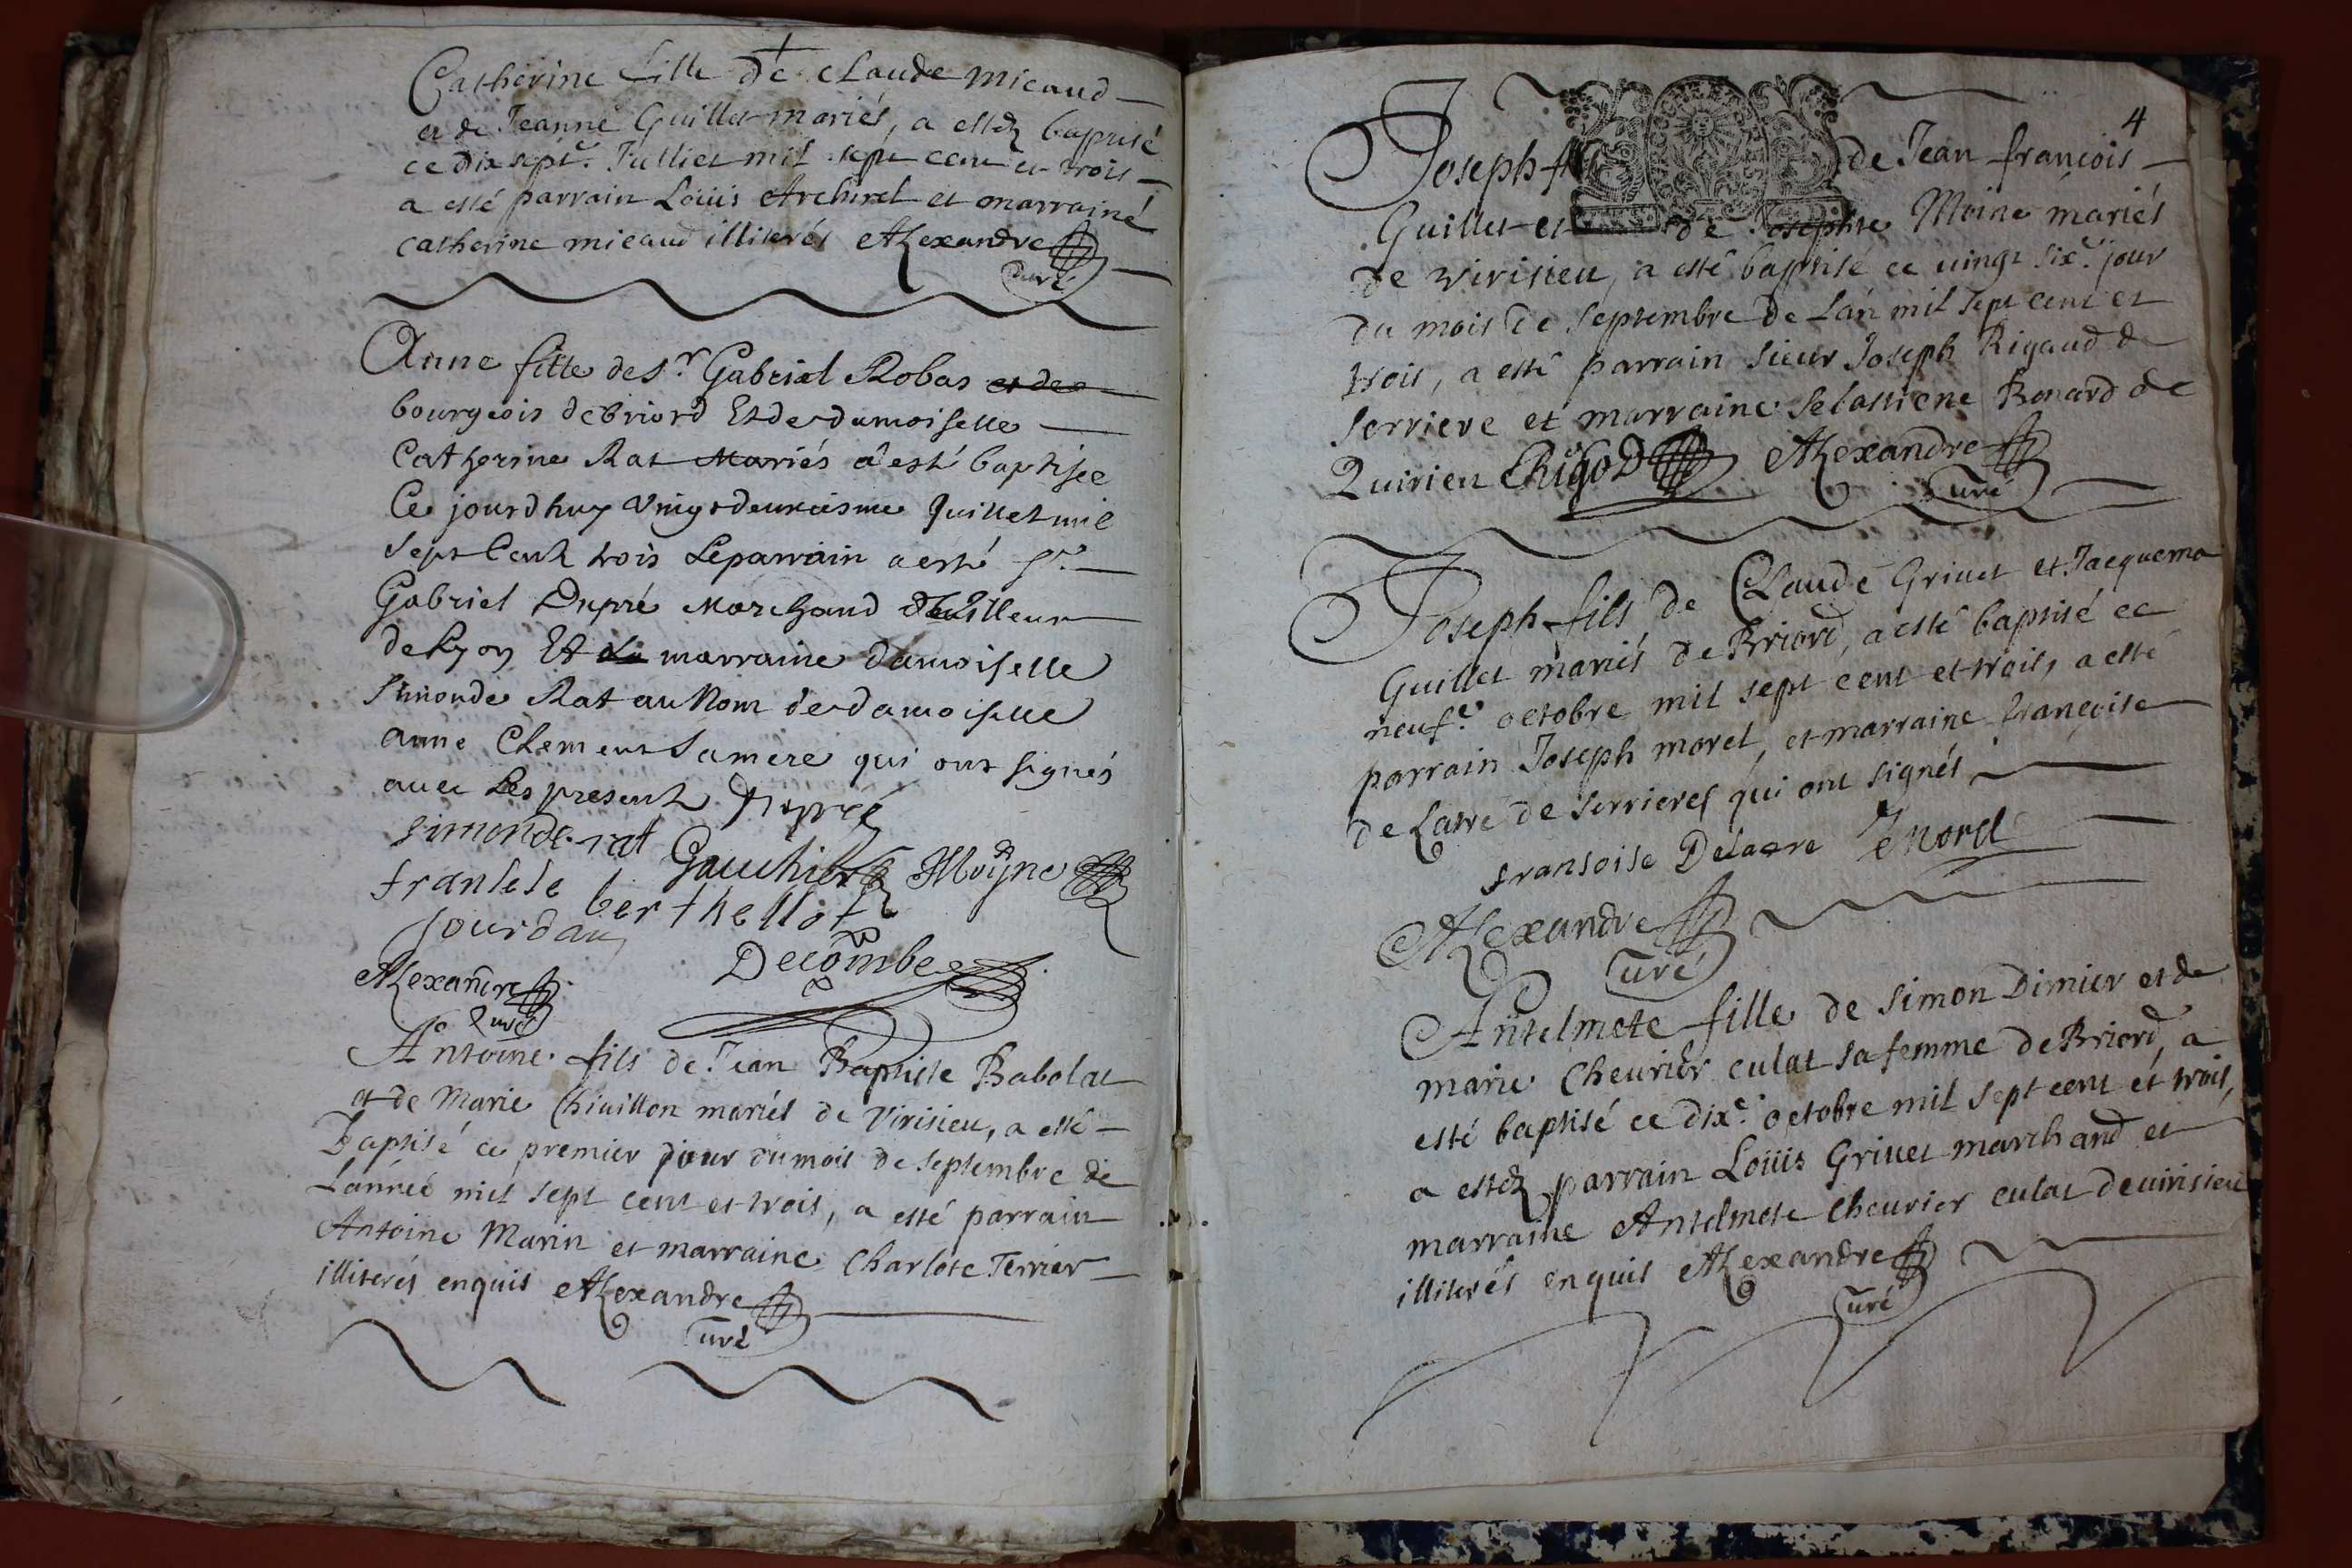 Catherine fille de Claude micaud
et de Jeanne Guillet mariés, a estéz baptisé
ce dix septe. Julliet mil sept cent et trois
a esté parrain Loüis Archirel et marraine
catherine micaud illiterés Alexandre
Curé
Anne fille de Sr. Gabriel Robas et de
bourgeois de Briord Et de damoiselle
Catherine Rat Mariés a esté baptisée
Ce jourdhuy Vingt deuxiesme Juillet mil
Sept Cent trois Le parrain a esté Sr.
Gabriel Dupré Marchand
de Lyon Et la marraine damoiselle
Simonde Rat au Nom de damoiselle
anne Clement Sa mere qui ont signés
avec Les presents Dupré
simonde rat Gauthier Moÿne
fransese berthellot
Jourdan
Decombe
Alexandre
Curé
Antoine fils de Jean Baptiste Babolat
et de Marie Chivillon mariés de Virisieu, a esté
Baptisé ce premier jour du mois de septembre de
L'année mil sept cent et trois, a esté parrain
Antoine Marin et marraine Charlote Terrier
illiterés enquis Alexandre
Curé
4
Joseph de Jean francois
Guillet et de Josephte Moine mariés
de virisieu, a esté baptisé ce vingt sixe. jour
du mois de septembre de L'an mil sept cent et
trois, a esté parrain sieur Joseph Rigaud de
serriere et marraine sebastiene Bonard de
Quirieu Rigod Alexandre
Curé
Joseph fils de Claude Grivet et Jacquema
Guillet mariés de Briord, a esté baptisé ce
neufe. octobre mil sept cent et trois, a esté
parrain Joseph morel, et marraine françoise
de Larre de serrieres qui ont signés
fransoise Delacre J Morel
Alexandre
Curé
Antelmete fille de simon Dimier et de
marie Cheurier culat sa femme de Briord, a
esté baptisé ce dixe. octobre mil sept cent et trois,
a estéz parrain Loüis Grivet marchand et
marraine Antelmete Cheurier culat de virisieu
illiterés enquis Alexandre
Curé